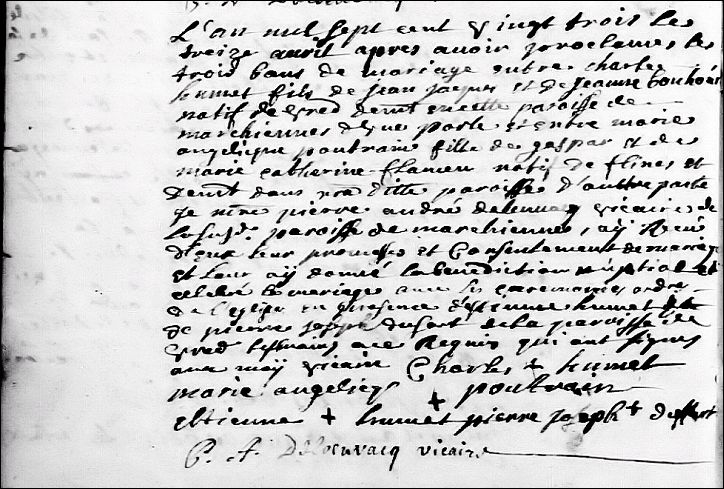 L'an mil sept cent vingt trois le
treize avril apres avoir proclames les
trois bans de mariage entre charles
humet fils de jean jaques et de jeanne bouhou
natif de vred demt en cette paroisse de
marchiennes d'une parte et entre marie
angelique poutrain fille de gaspar et de
marie catherine flameu natif de flines et
demt dans nre ditte paroisse d'auttre parte
je mre pierre andré delevacq vicaire de
la susd. paroisse de marchiennes, aÿ Receu
d'eux leur promesses et Consentement de mariage
et leur aÿ donné la benediction nuptial et
celebré le mariage avec les ceremonies ordre
de l'eglise en presence d'estienne humet
de pierre joseph dufort de la paroisse de
vred tesmoins a ce Requis qui ont signes
avec moÿ vicaire Charles + humet
marie angeliqe + poutrain
estienne + humet pierre joseph + dufort
P. A. vicaire